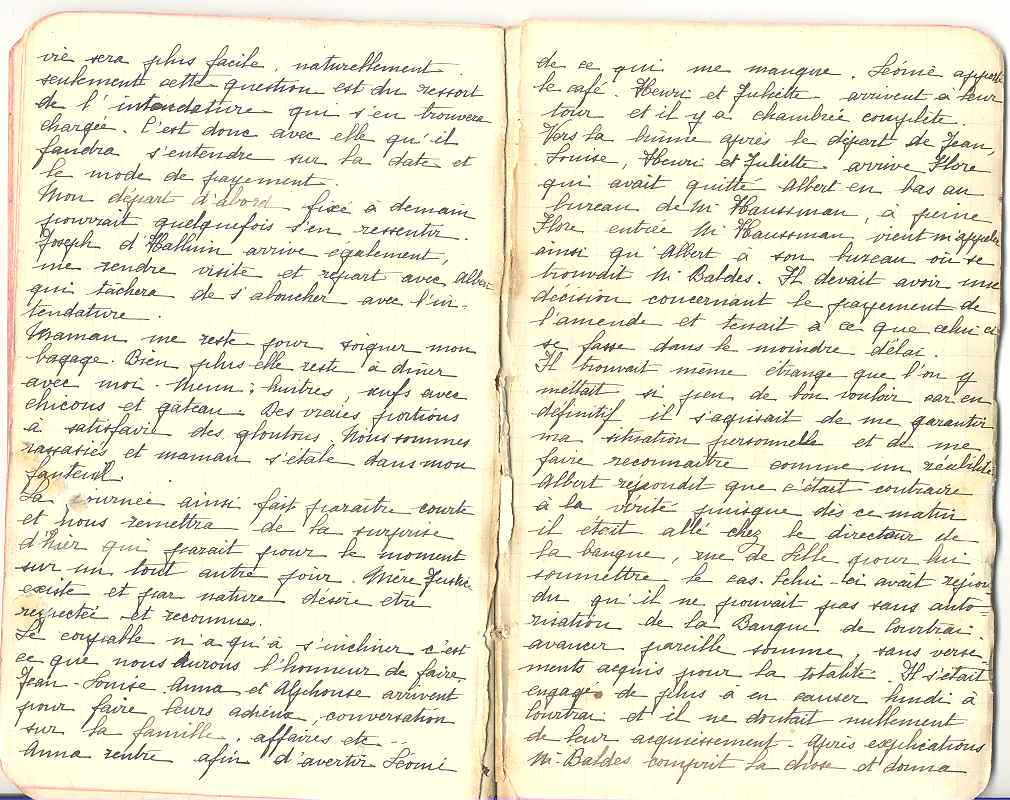 vie sera plus facile naturellement.
seulement cette question est du ressort
de l'intendature qui s'en trouvera
chargée. C'est donc avec elle qu'il
faudra s'entendre sur la date et
le mode de payement.
Mon départ d'abord fixé à demain
pourrait quelquefois s'en ressentir.
Joseph d'Halluin arrive également,
me rendre visite et repart avec Albert
qui tâchera de s'aboucher avec l'in-
tendature.
Maman me reste pour soigner mon
bagage. Bien plus elle reste à dîner
avec moi. Menu: huîtres, œufs avec
chicons et gâteau. Des vraies portions
à satisfaire des gloutons. Nous sommes
rassasiés et maman s'étale dans mon
fauteuil.
La journée ainsi fait paraître courte
et nous remettra de la surprise
d'hier qui parait pour le moment
sur un tout autre jour. Mère Justice
existe et par nature désire etre
respectée et reconnue.
Le coupable n'a qu'à s'incliner c'est
ce que nous aurons l'honneur de faire.
Jean-Louise Anna et Alphonse arrivent
pour faire leurs adieux, conversation
sur la famille, affaires etc...
Anna rentre afin d'avertir Léonie
de ce qui me manque. Léonie apporte
le café. Henri et Juliette arrivent à leur
tour et il y a chambrée complète.
Vers la brune après le départ de Jean,
Louise, Henri et Juliette arrive Flore
qui avait quitté Albert en bas au
bureau de Mr Haussman, à peine
Flore entrée Mr Haussman vient m'appeler
ainsi qu'Albert à son bureau où se
trouvait Mr Baldes. Il devait avoir une
décision concernant le payement de
l'amende et tenait à ce que celui ci
se fasse dans le moindre délai.
Il trouvait même étrange que l'on y
mettait si peu de bon vouloir car en
définitif il s'agisait de me garantir
ma situation personnelle et de me
faire reconnaitre comme un
Albert répondit que c'était contraire
à la vérité puisque dès ce matin
il était allé chez le directeur de
la banque, rue de Lille pour lui
soumettre le cas. Celui-ci avait répon-
du qu'il ne pouvait pas sans auto-
risation de la Banque de Courtrai.
avancer pareille somme, sans verse-
ments acquis pour la totalité. Il s'était
engagé de plus à en causer lundi à
Courtrai et il ne doutait nullement
de leur acquiessement. Après explications
Mr Baldes comprit la chose et donna